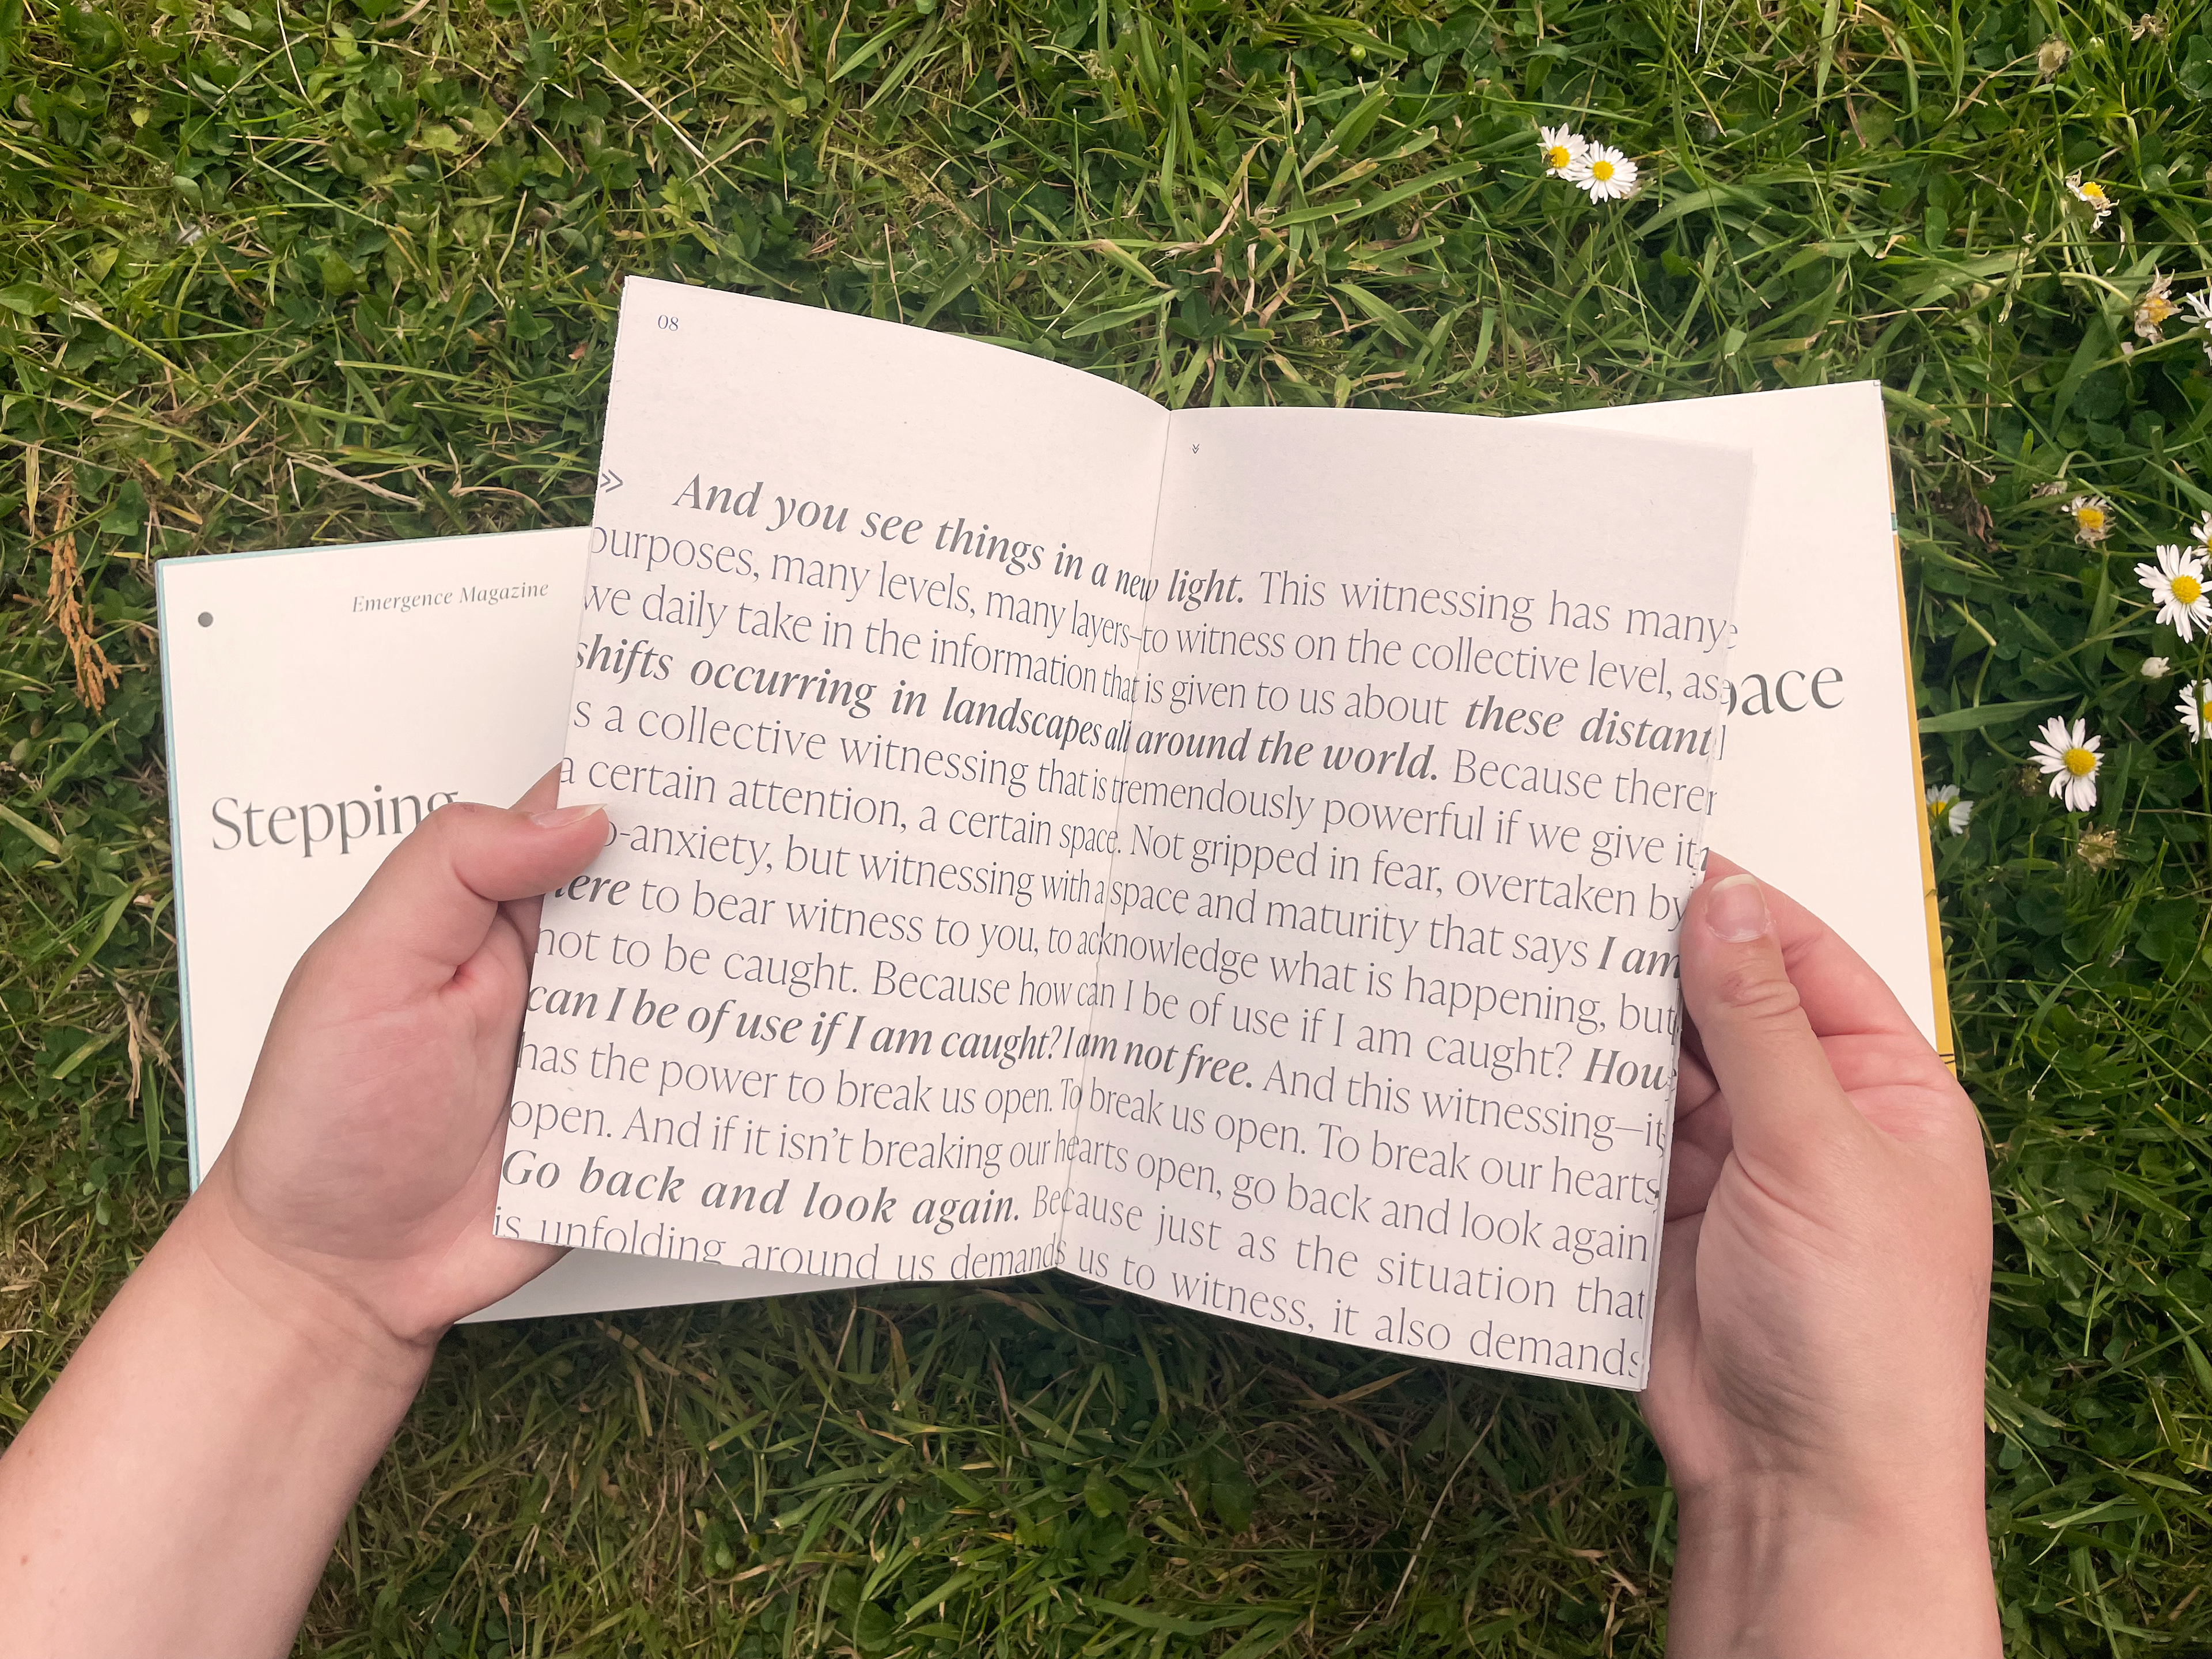 08
» And you see things in a new light. This witnessing has many
purposes, many levels, many layers–to witness on the collective level, as
we daily take in the information that is given to us about these distant
shifts occurring in landscapes all around the world. Because there
s a collective witnessing that is tremendously powerful if we give it
a certain attention, a certain space. Not gripped in fear, overtaken by
o-anxiety, but witnessing with a space and maturity that says I am
ere to bear witness to you, to acknowledge what is happening, but
not to be caught. Because how can I be of use if I am caught? How
can I be of use if I am caught? I am not free. And this witnessing—it
has the power to break us open. To break us open. To break our hearts
open. And if it isn't breaking our hearts open, go back and look again
Go back and look again. Because just as the situation that
is unfolding around us demands us to witness, it also demands
Emergence Magazine
Stepping
pace